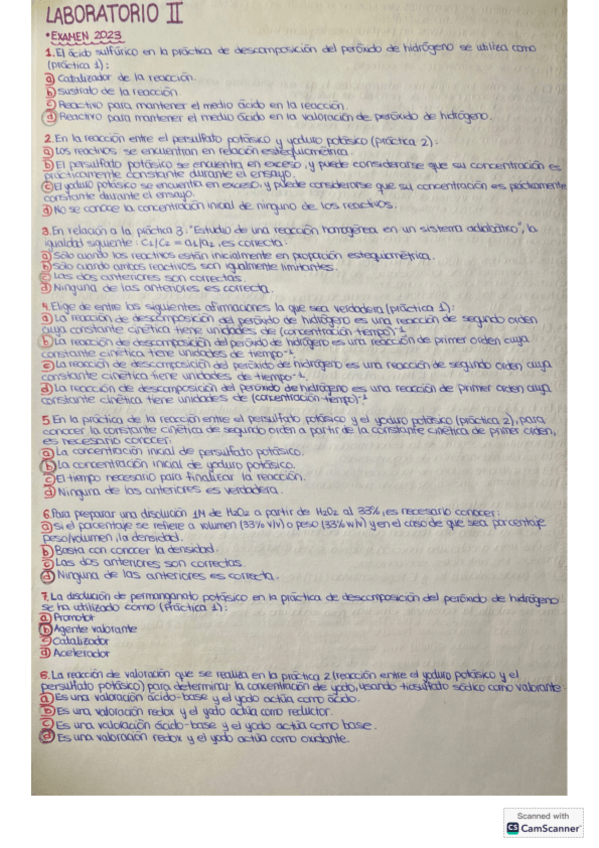 LABORATORIO II
•EXAMEN 2023
1. El ácido sulfúrico en la práctica de descomposición del peróxido de hidrógeno se utiliza como
(práctica 1):
a) Catalizador de la reacción.
b) Sustrato de la reacción.
c) Reactivo para mantener el medio ácido en la reacción.
d) Reactivo para mantener el medio ácido en la valoración de peróxido de hidrógeno.
2. En la reacción entre el persulfato potásico y yoduro potásico (práctica 2):
a) Los reactivos se encuentran en relación estequiométrica.
b) El persulfato potásico se encuentra en exceso, y puede considerarse que su concentración es
prácticamente constante durante el ensayo.
c) El yoduro potásico se encuentra en exceso, y puede considerarse que su concentración es prácticamente
constante durante el ensayo.
d) No se conoce la concentración inicial de ninguno de los reactivos.
3. En relación a la práctica 3: "Estudio de una reacción homogénea en un sistema adiabático", la
igualdad siguiente: C1/C2 = a1/a2, es correcta:
a) Sólo cuando los reactivos están inicialmente en proporción estequiométrica.
b) Sólo cuando ambos reactivos son igualmente limitantes.
c) Las dos anteriores son correctas.
d) Ninguna de las anteriores es correcta.
4. Elige de entre las siguientes afirmaciones la que sea verdadera (práctica 1):
a) La reacción de descomposición del peróxido de hidrógeno es una reacción de segundo orden
cuya constante cinética tiene unidades de (concentración·tiempo)⁻¹
b) La reacción de descomposición del peróxido de hidrógeno es una reacción de primer orden cuya
constante cinética tiene unidades de tiempo⁻¹.
c) La reacción de descomposición del peróxido de hidrógeno es una reacción de segundo orden cuya
constante cinética tiene unidades de tiempo⁻¹.
d) La reacción de descomposición del peróxido de hidrógeno es una reacción de primer orden cuya
constante cinética tiene unidades de (concentración·tiempo)⁻¹
5. En la práctica de la reacción entre el persulfato potásico y el yoduro potásico (práctica 2), para
conocer la constante cinética de segundo orden a partir de la constante cinética de primer orden,
es necesario conocer:
a) La concentración inicial de persulfato potásico.
b) La concentración inicial de yoduro potásico.
c) El tiempo necesario para finalizar la reacción.
d) Ninguna de las anteriores es verdadera.
6. Para preparar una disolución 1M de H2O2 a partir de H2O2 al 33%, es necesario conocer:
a) Si el porcentaje se refiere a volumen (33% v/v) o peso (33% w/v) y en el caso de que sea porcentaje
peso/volumen, la densidad.
b) Basta con conocer la densidad.
c) Las dos anteriores son correctas.
d) Ninguna de las anteriores es correcta.
7. La disolución de permanganato potásico en la práctica de descomposición del peróxido de hidrógeno
se ha utilizado como (Práctica 1):
a) Promotor
b) Agente valorante
c) Catalizador
d) Acelerador
8. La reacción de valoración que se realiza en la práctica 2 (reacción entre el yoduro potásico y el
persulfato potásico) para determinar la concentración de yodo, usando tiosulfato sódico como valorante:
a) Es una valoración ácido-base y el yodo actúa como ácido.
b) Es una valoración redox y el yodo actúa como reductor.
c) Es una valoración ácido-base y el yodo actúa como base.
d) Es una valoración redox y el yodo actúa como oxidante.
Scanned with
CS CamScanner